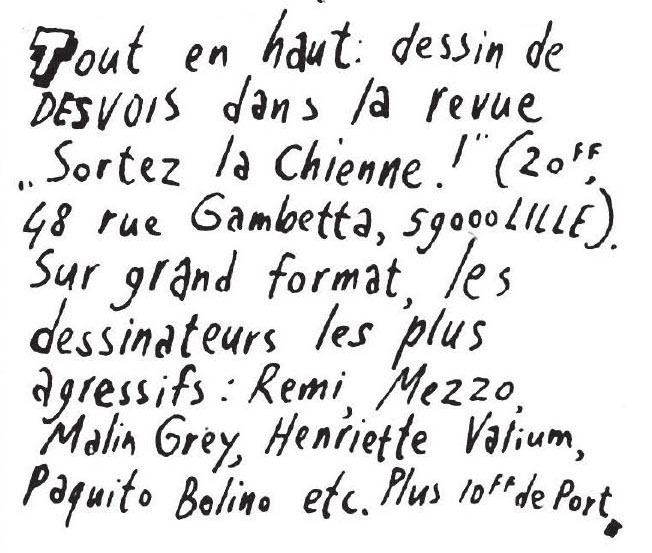 Tout en haut: dessin de
DESVOIS dans la revue
„Sortez la Chienne!" (20FF,
48 rue Gambetta, 59000 LILLE).
Sur grand format, les
dessinateurs les plus
agressifs: Remi, Mezzo,
Malin Grey, Henriette Valium,
Paquito Bolino etc. Plus 10FF de Port.